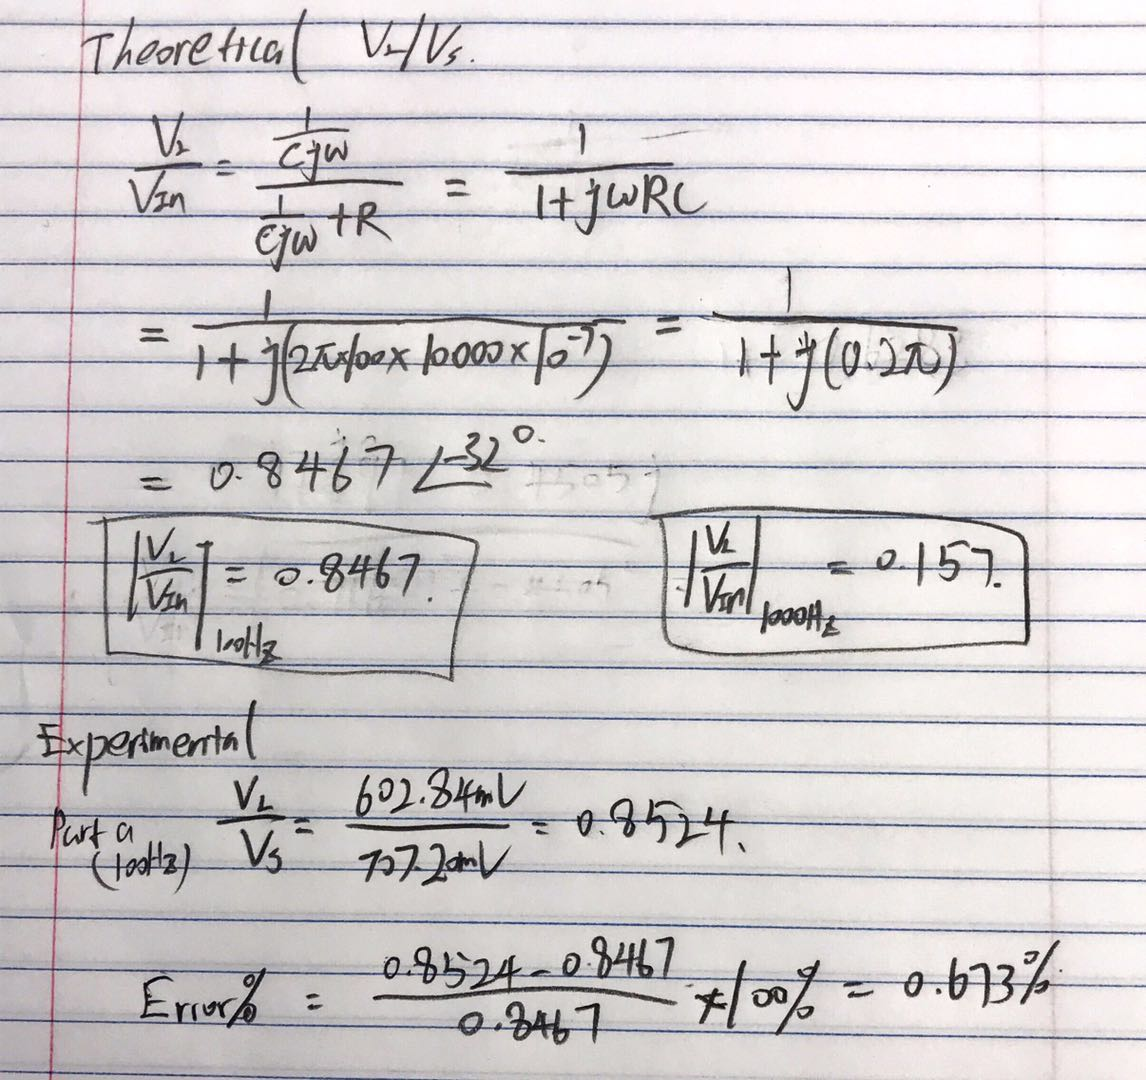 Theoretical V₂/Vs.
V₂/VIn = (1/Cjω)/(1/Cjω + R) = 1/(1+jωRC)
= 1/(1+j(2π×100×10000×10⁻⁷)) = 1/(1+j(0.2π))
= 0.8467 ∠-32°.
|V₂/VIn|100Hz = 0.8467. |V₂/VIn|1000Hz = 0.157.
Experimental
Part a (100Hz) V₂/Vs = 602.84mV/707.20mV = 0.8524.
Error% = (0.8524-0.8467)/0.8467 ×100% = 0.673%